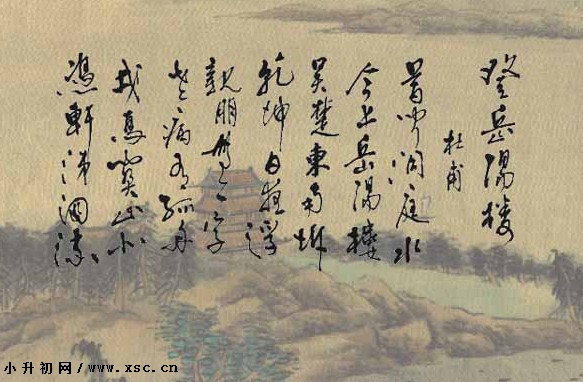 登岳阳楼
杜甫
昔闻洞庭水
今上岳阳楼
吴楚东南坼
乾坤日夜浮
亲朋无一字
老病有孤舟
戎马关山北
凭轩涕泗流
小升初网/www.xsc.cn